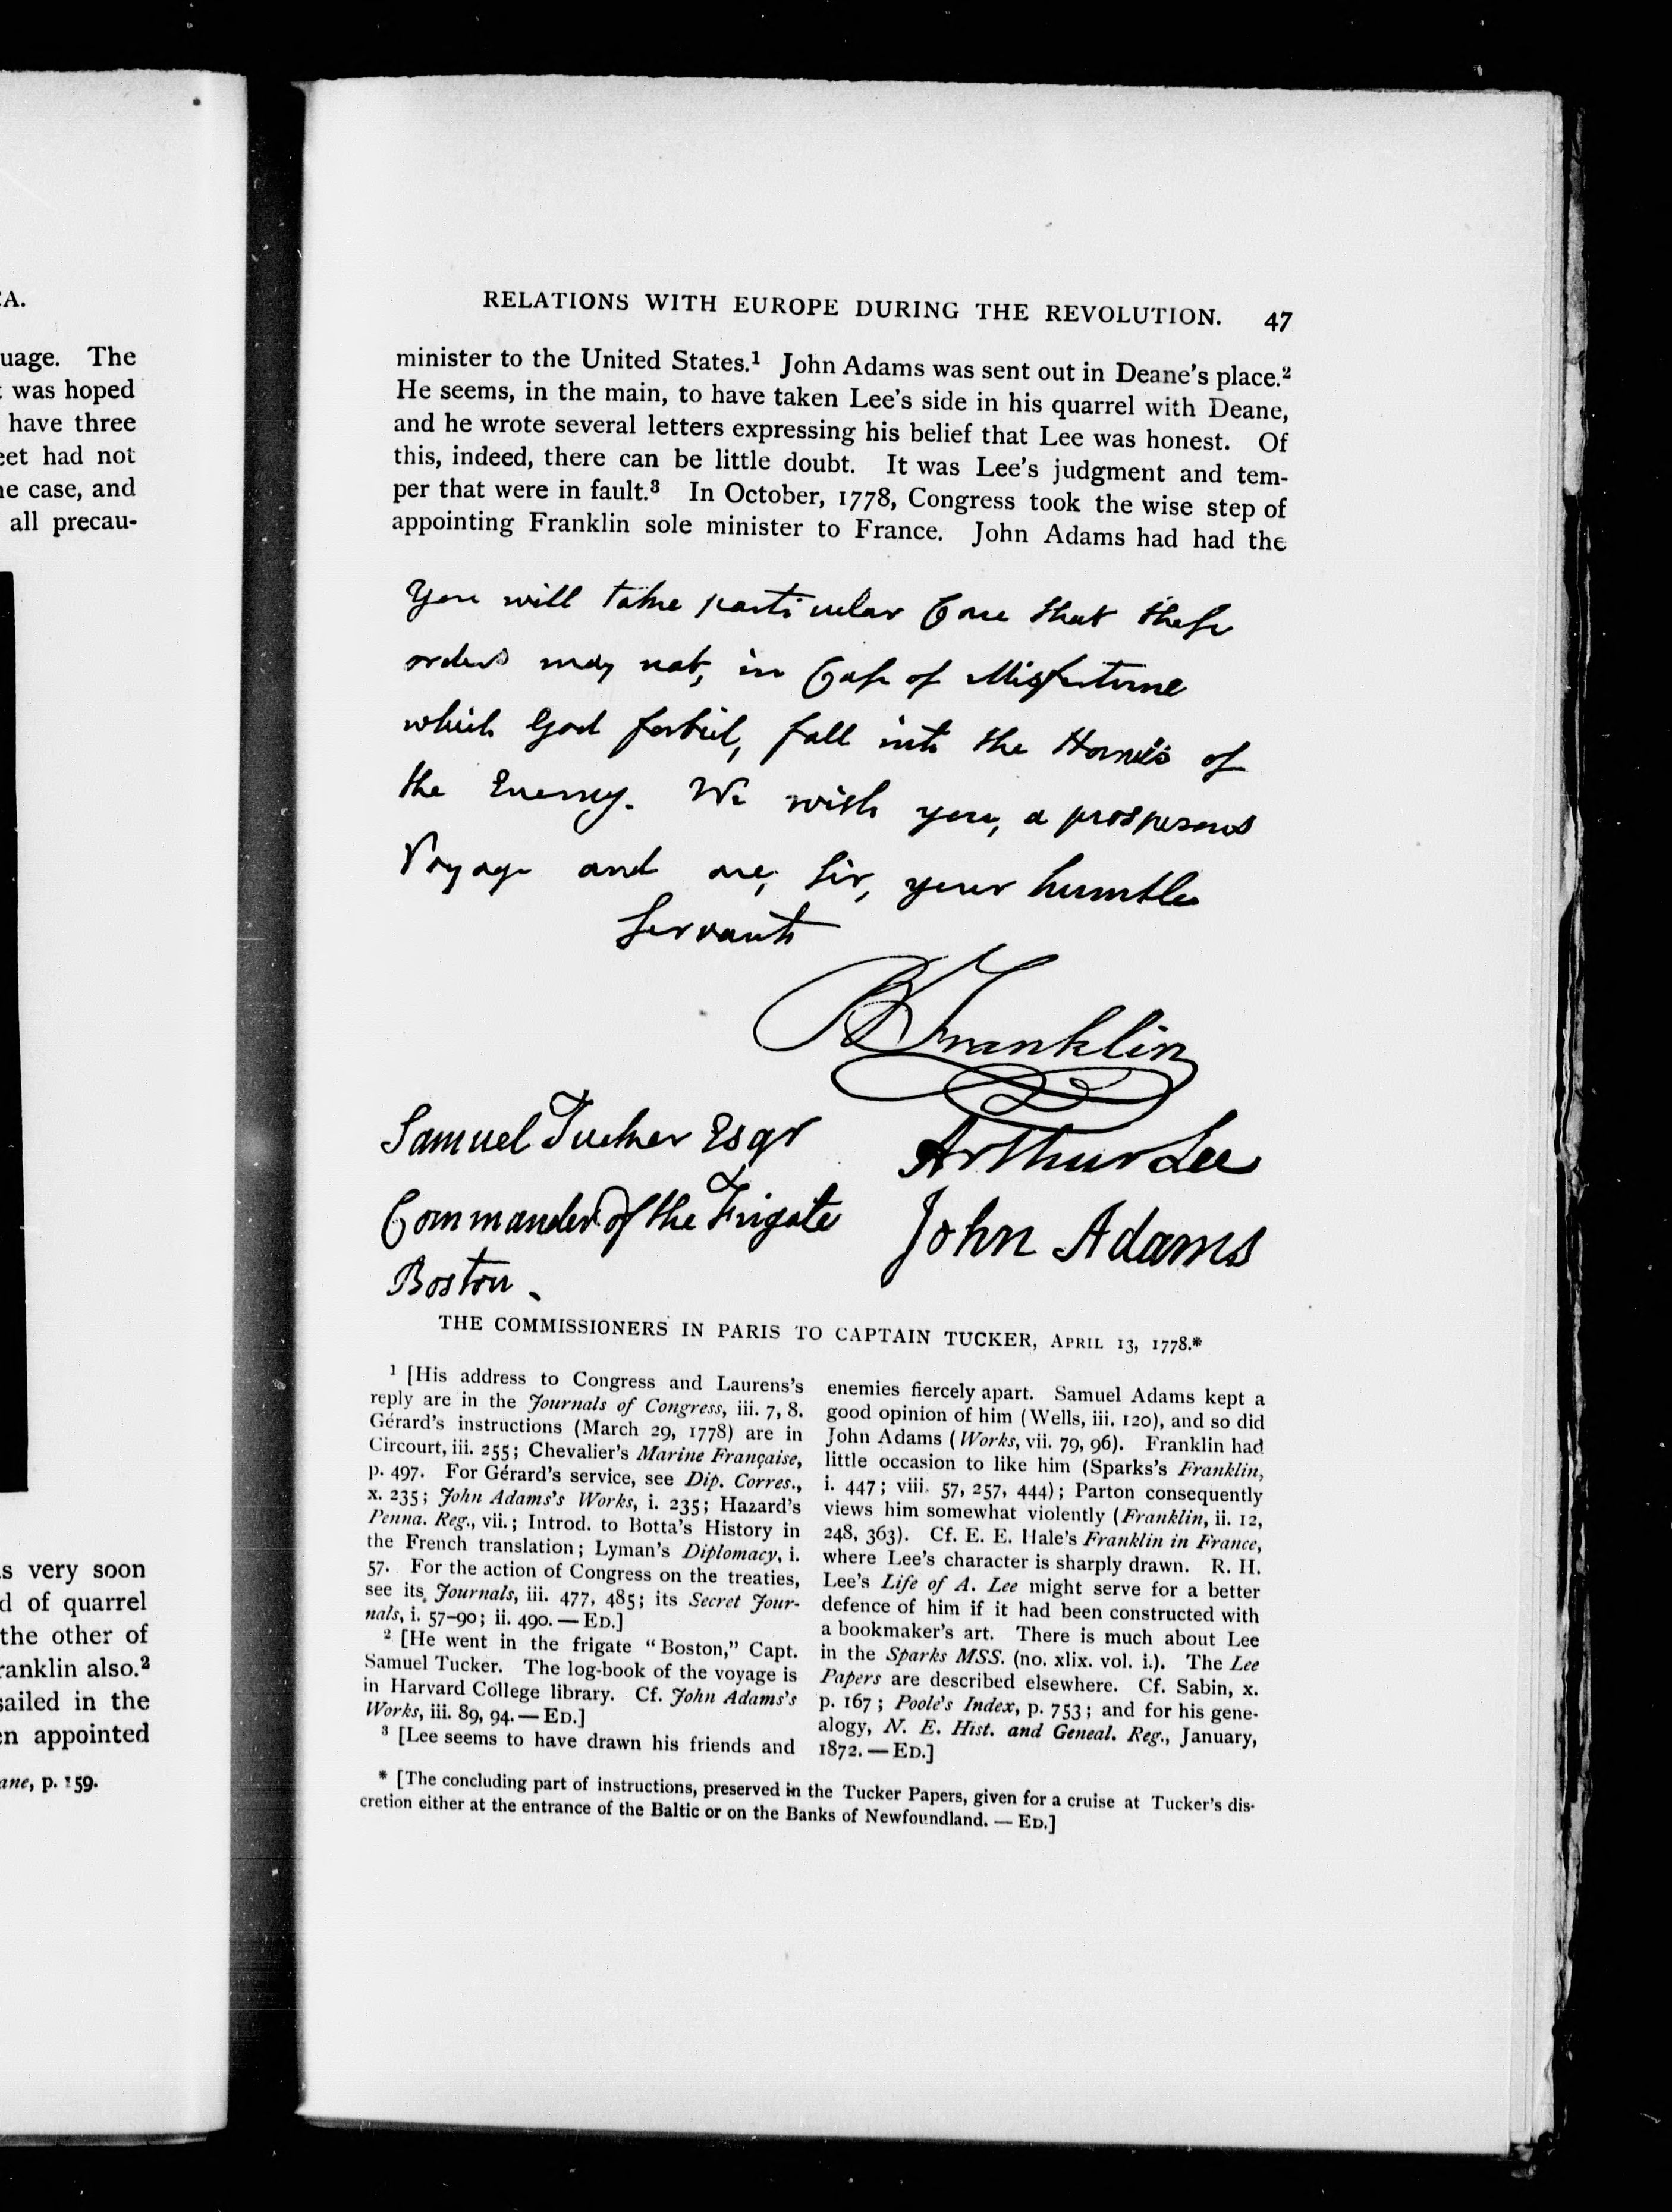 CA.
uage. The
was hoped
have three
eet had not
he case, and
all precau-
s very soon
d of quarrel
the other of
ranklin also.²
sailed in the
en appointed
ane, p. 159.
RELATIONS WITH EUROPE DURING THE REVOLUTION. 47
minister to the United States.¹ John Adams was sent out in Deane's place.²
He seems, in the main, to have taken Lee's side in his quarrel with Deane,
and he wrote several letters expressing his belief that Lee was honest. Of
this, indeed, there can be little doubt. It was Lee's judgment and tem-
per that were in fault.³ In October, 1778, Congress took the wise step of
appointing Franklin sole minister to France. John Adams had had the
You will take particular Care that these
orders may not, in Case of Misfortune
which God forbid, fall into the Hands of
the Enemy. We wish you, a prosperous
Voyage and are, Sir, your humble
Servants
B Franklin
Samuel Tucker Esqr
Arthur Lee
Commander of the Frigate
John Adams
Boston.
THE COMMISSIONERS IN PARIS TO CAPTAIN TUCKER, APRIL 13, 1778.*
¹ [His address to Congress and Laurens's
reply are in the Journals of Congress, iii. 7, 8.
Gérard's instructions (March 29, 1778) are in
Circourt, iii. 255; Chevalier's Marine Française,
p. 497. For Gérard's service, see Dip. Corres.,
x. 235; John Adams's Works, i. 235; Hazard's
Penna. Reg., vii.; Introd. to Botta's History in
the French translation; Lyman's Diplomacy, i.
57. For the action of Congress on the treaties,
see its Journals, iii. 477, 485; its Secret Jour-
nals, i. 57-90; ii. 490. — ED.]
² [He went in the frigate "Boston," Capt.
Samuel Tucker. The log-book of the voyage is
in Harvard College library. Cf. John Adams's
Works, iii. 89, 94. — ED.]
³ [Lee seems to have drawn his friends and
enemies fiercely apart. Samuel Adams kept a
good opinion of him (Wells, iii. 120), and so did
John Adams (Works, vii. 79, 96). Franklin had
little occasion to like him (Sparks's Franklin,
i. 447; viii. 57, 257, 444); Parton consequently
views him somewhat violently (Franklin, ii. 12,
248, 363). Cf. E. E. Hale's Franklin in France,
where Lee's character is sharply drawn. R. H.
Lee's Life of A. Lee might serve for a better
defence of him if it had been constructed with
a bookmaker's art. There is much about Lee
in the Sparks MSS. (no. xlix. vol. i.). The Lee
Papers are described elsewhere. Cf. Sabin, x.
p. 167; Poole's Index, p. 753; and for his gene-
alogy, N. E. Hist. and Geneal. Reg., January,
1872. — ED.]
* [The concluding part of instructions, preserved in the Tucker Papers, given for a cruise at Tucker's dis-
cretion either at the entrance of the Baltic or on the Banks of Newfoundland. — ED.]